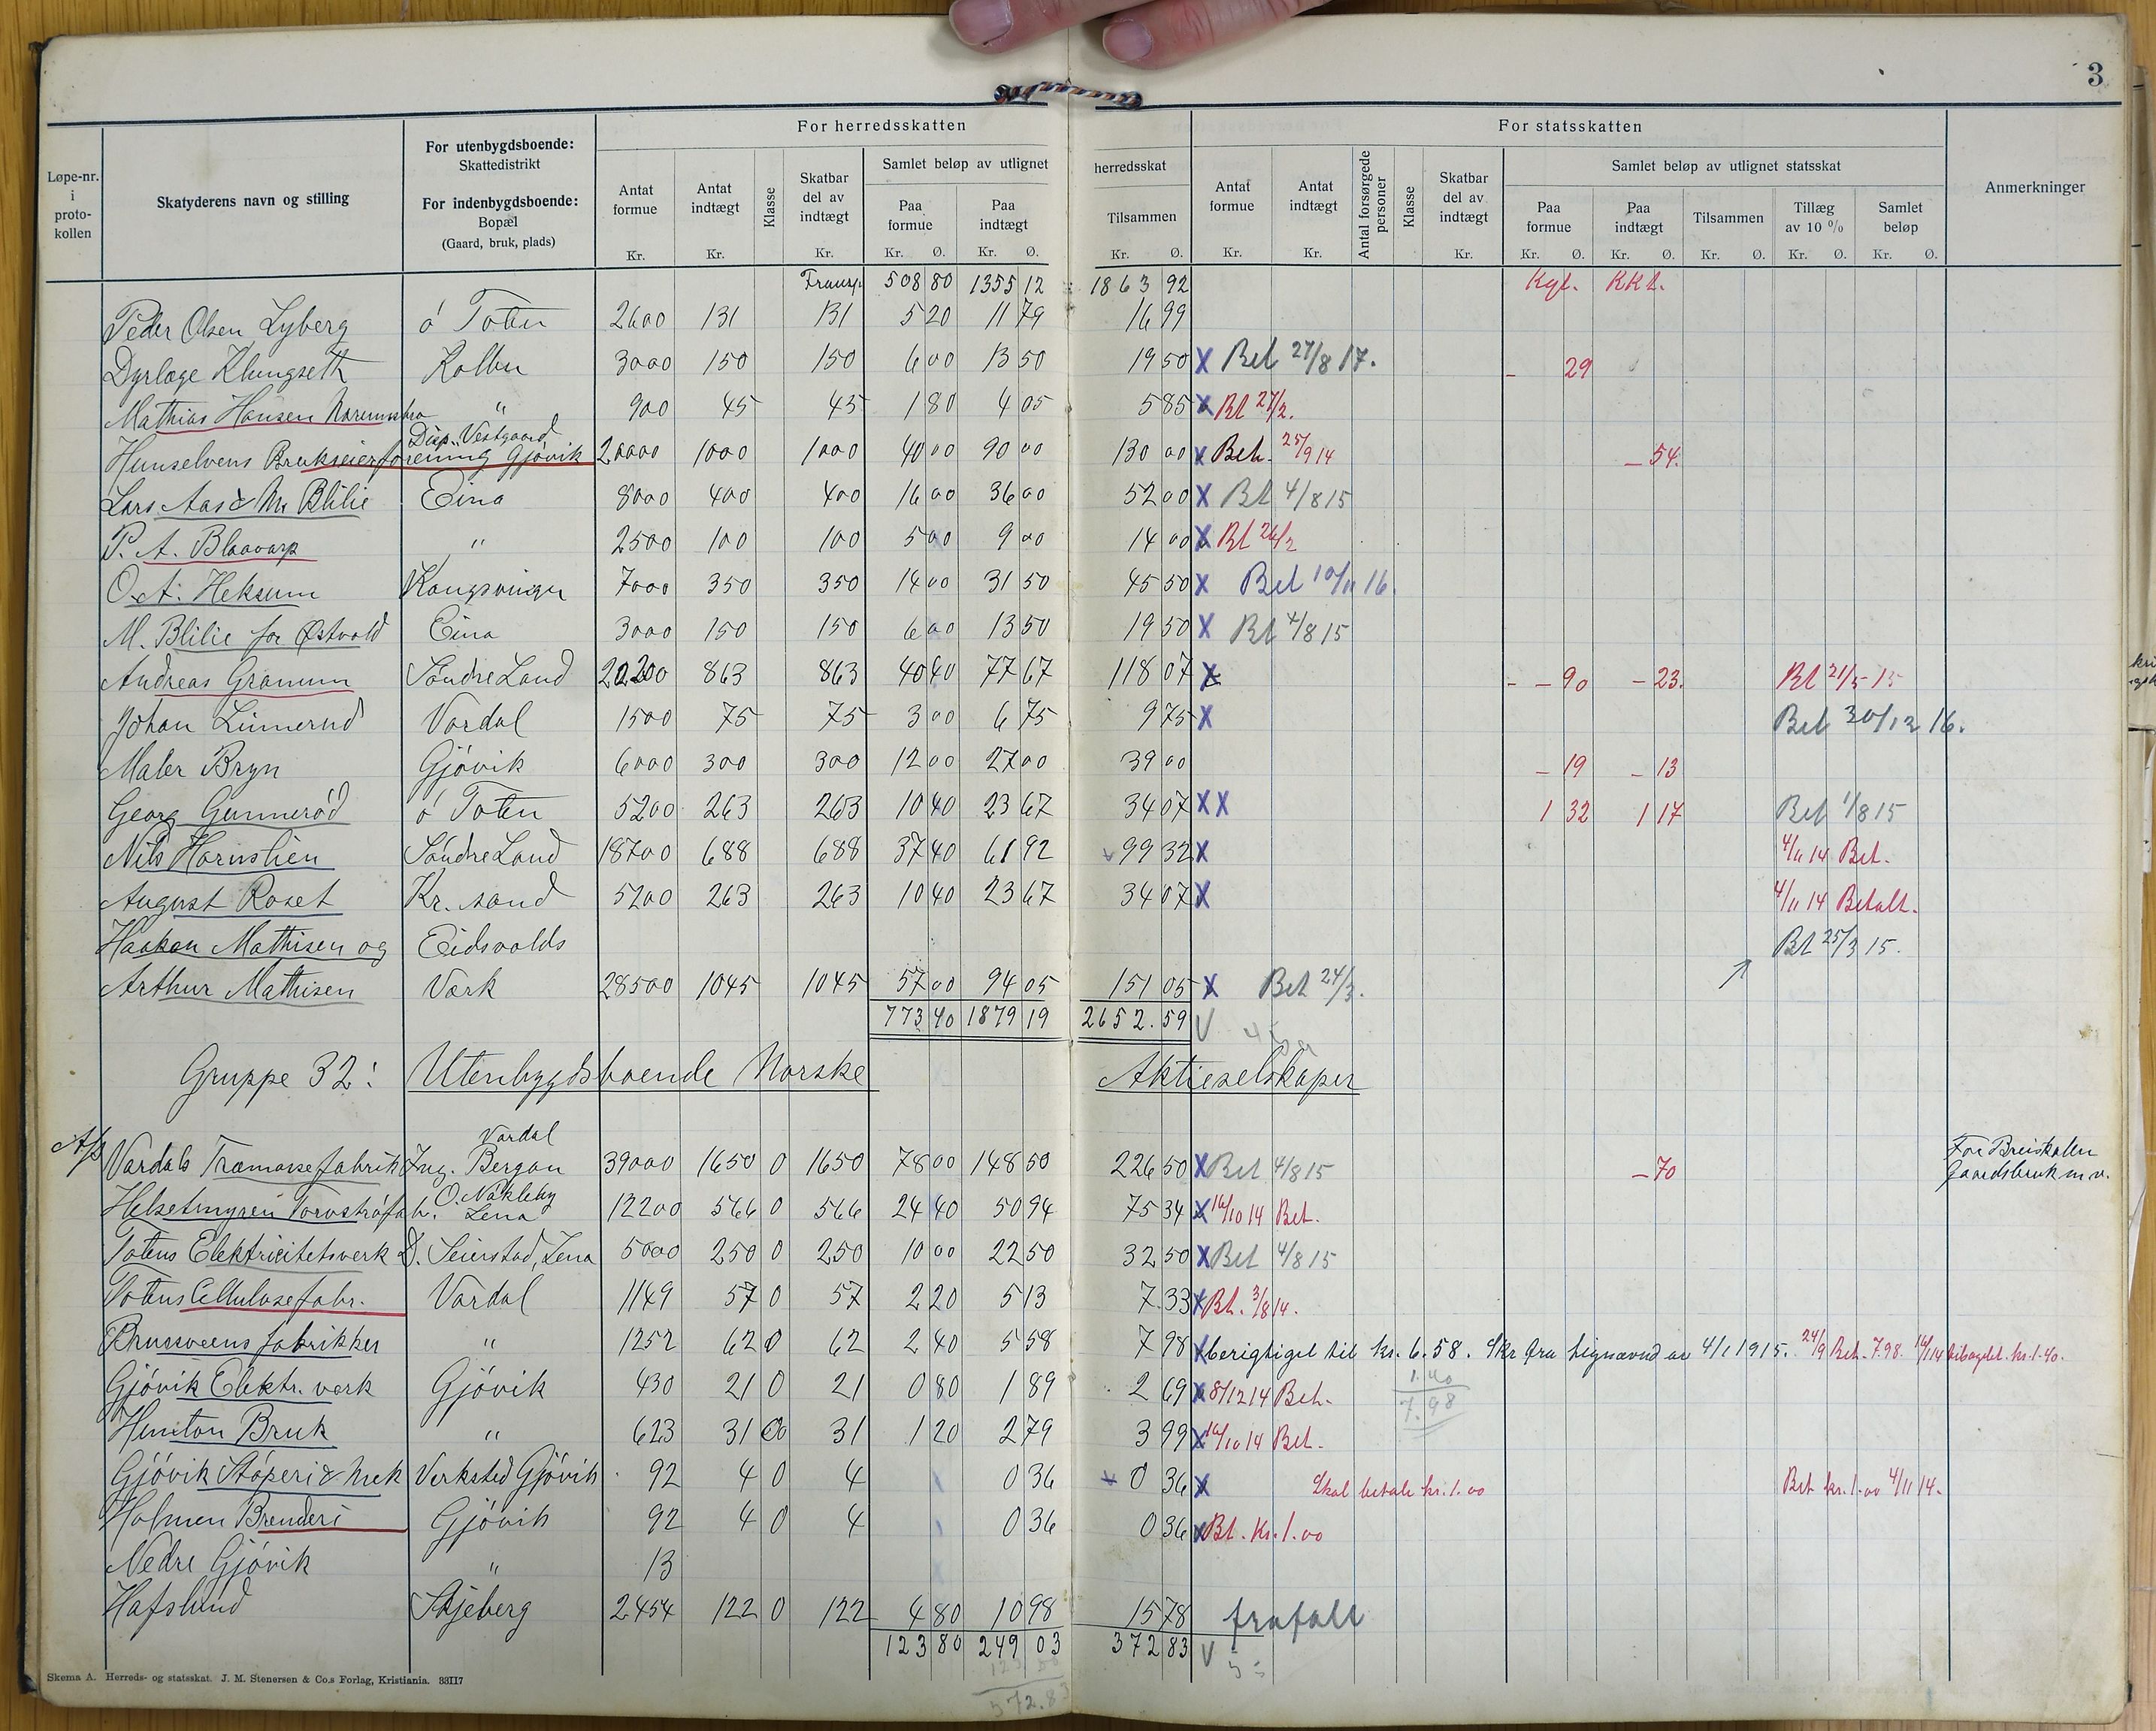 3
For herredsskatten
herredsskat
For statsskatten
Løpe-nr. i proto-kollen
Skatyderens navn og stilling
For utenbygdsboende: Skattedistrikt
For indenbygdsboende: Bopæl (Gaard, bruk, plads)
Antat formue Kr.
Antat indtægt Kr.
Klasse
Skatbar del av indtægt Kr.
Samlet beløp av utlignet
Paa formue Kr. Ø.
Paa indtægt Kr. Ø.
Tilsammen Kr. Ø.
Antat formue Kr.
Antat indtægt Kr.
Antal forsørgede personer
Klasse
Skatbar del av indtægt Kr.
Samlet beløp av utlignet statsskat
Paa formue Kr. Ø.
Paa indtægt Kr. Ø.
Tilsammen Kr. Ø.
Tillæg av 10 % Kr. Ø.
Samlet beløp Kr. Ø.
Anmerkninger
Transp. 508 80 1355 12 1863 92
Peder Olsen Lyberg ö Toten 2600 131 131 5 20 11 79 16 99
Dyrlæge Klungseth Kolbu 3000 150 150 6 00 13 50 19 50 X Bet 27/8 17. - 29
Mathias Hansen " 900 45 45 1 80 4 05 5 85 X Bt 27/2.
Disp. Vestgaard
Hunselvens Brukseierforening Gjövik 20000 1000 1000 40 00 90 00 130 00 X Bet. 25/9 14 - 54.
Lars Aas & M. Blilie Eina 8000 400 400 16 00 36 00 52 00 X Bt 4/8 15
P. A. Blaavarp " 2500 100 100 5 00 9 00 14 00 X Bt 26/2
O. A. Heksum Kongsvinger 7000 350 350 14 00 31 50 45 50 X Bet 10/11 16.
M. Blilie for Østvold Eina 3000 150 150 6 00 13 50 19 50 X Bt 4/8 15
Andreas Granum Söndre Land 20200 863 863 40 40 77 67 118 07 X - - 90 - 23. Bt 21/5 - 15
Johan Linnerud Vardal 1500 75 75 3 00 6 75 9 75 X Bet 30/12 16.
Maler Bryn Gjövik 6000 300 300 12 00 27 00 39 00 - 19 - 13
Georg Gunneröd ö Toten 5200 263 263 10 40 23 67 34 07 X X 1 32 1 17 Bet 1/8 15
Nils Hornslien Söndre Land 18700 688 688 37 40 61 92 99 32 X 4/11 14 Bet.
August Roset Kr. sand 5200 263 263 10 40 23 67 34 07 X 4/11 14 Betalt.
Haakon Mathisen og Eidsvolds Bt 25/3 15.
Arthur Mathisen Værk 28500 1045 1045 57 00 94 05 151 05 X Bet 24/3.
773 40 1879 19 2652.59 V
Gruppe 32: Utenbygdsboende Norske Aktieselskaper
Vardal
A/S Vardals Træmassefabrik Ing. Bergan 39000 1650 0 1650 78 00 148 50 226 50 X Bet 4/8 15 - 70
For Breiskallen
Gaardsbruk m. v.
O. Nökleby
Helsetmyren Torvströfab. Lena 12200 566 0 566 24 40 50 94 75 34 X 16/10 14 Bet.
Totens Elektricitetsverk D. Seierstad, Lena 5000 250 0 250 10 00 22 50 32 50 X Bet 4/8 15
Totens Cellulosefabr. Vardal 1149 57 0 57 2 20 5 13 7.33 X Bt. 3/8 14.
Brusveens fabrikker " 1252 62 0 62 2 40 5 58 7 98 X berigtiget til kr. 6.58. Skr fra lignævnd av 4/1 1915. 24/9 Bet. 7.98. 16/1 14 tilbagebt. kr. 1.40.
Gjövik Elektr. værk Gjövik 430 21 0 21 0 80 1 89 2 69 X 8/12 14 Bet.
1.40
7.98
Hunton Bruk " 623 31 0 31 1 20 2 79 3 99 X 16/10 14 Bet.
Gjövik Stöperi & Mek Verksted Gjövik 92 4 0 4 0 36 0 36 X Skal betale kr. 1.00 Bet kr. 1.00 4/11 14.
Holmen Brenderi Gjövik 92 4 0 4 0 36 0 36 X Bt. Kr. 1.00
Nedre Gjövik " 13
Hafslund Skjeberg 2454 122 0 122 4 80 10 98 15 78 frafalt
123 80 249 03 372 83 V
372.83
Skema A. Herreds- og statsskat. J. M. Stenersen & Co.s Forlag, Kristiania. 33117